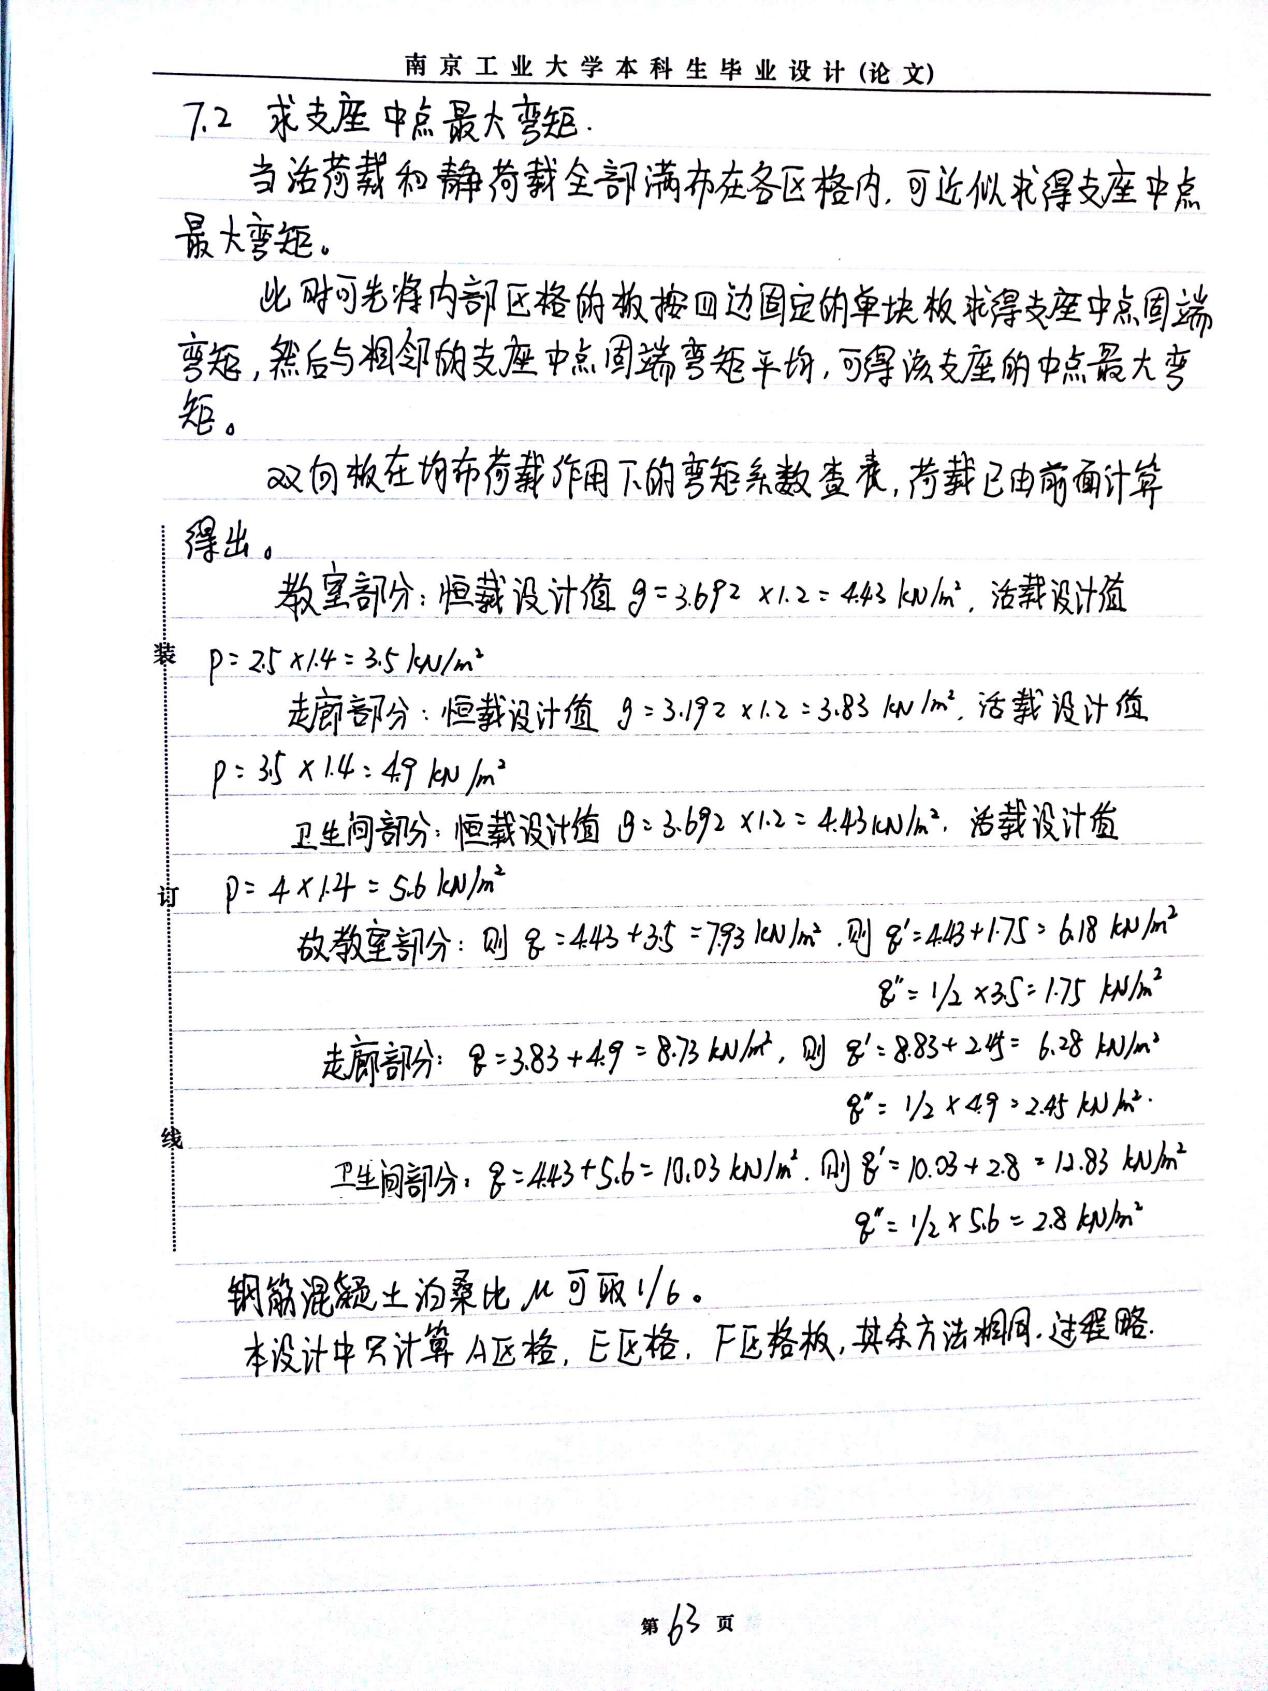 南京工业大学本科生毕业设计(论文)
7.2 求支座中点最大弯矩.
当活荷载和静荷载全部满布在各区格内,可近似求得支座中点
最大弯矩。
此时可先将内部区格的板按四边固定的单块板求得支座中点固端
弯矩,然后与相邻的支座中点固端弯矩平均,可得该支座的中点最大弯
矩。
双向板在均布荷载作用下的弯矩系数查表,荷载已由前面计算
得出。
教室部分:恒载设计值 g=3.692×1.2=4.43 kN/m²,活载设计值
装
p=2.5×1.4=3.5 kN/m²
走廊部分:恒载设计值 g=3.192×1.2=3.83 kN/m²,活载设计值
p=3.5×1.4=4.9 kN/m²
卫生间部分:恒载设计值 g=3.692×1.2=4.43 kN/m²,活载设计值
订
p=4×1.4=5.6 kN/m²
故教室部分:则 q=4.43+3.5=7.93 kN/m².则 q'=4.43+1.75=6.18 kN/m²
q"=1/2×3.5=1.75 kN/m²
走廊部分:q=3.83+4.9=8.73 kN/m²,则 q'=8.83+2.45=6.28 kN/m²
q"=1/2×4.9=2.45 kN/m².
线
卫生间部分:q=4.43+5.6=10.03 kN/m².则 q'=10.03+2.8=12.83 kN/m²
q"=1/2×5.6=2.8 kN/m²
钢筋混凝土泊桑比 μ 可取 1/6。
本设计中只计算 A区格,E区格,F区格板,其余方法相同.过程略.
第 63 页